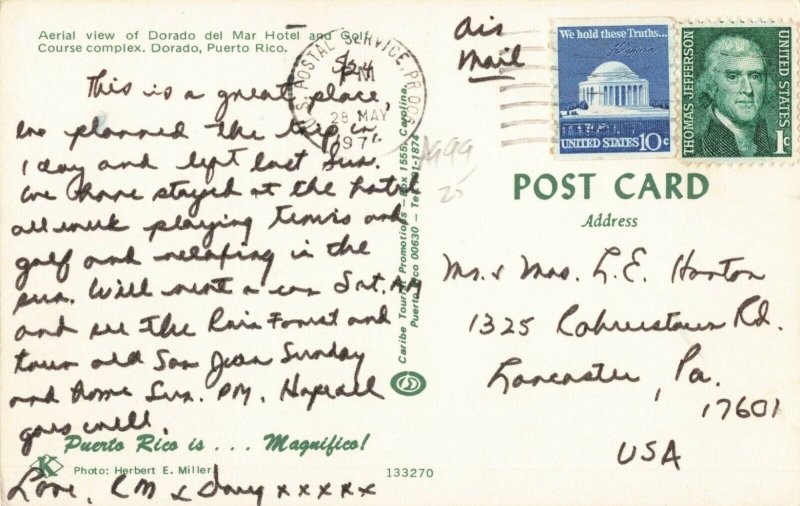 Aerial view of Dorado del Mar Hotel and Golf
Course complex. Dorado, Puerto Rico.
This is a great place,
we planned the trip in
1 day and left last Sun.
We have stayed at the hotel
all week playing tennis and
golf and relaxing in the
sun. Will rent a car Sat. AM
and see the Rain Forest and
tour old San Juan Sunday
and home Sun. PM. Hope all
goes well.
Puerto Rico is . . . Magnifico!
K
Photo: Herbert E. Miller
133270
Love, & Dory xxxxx
U.S. POSTAL SERVICE, PR
PM
28 MAY
5/24
Caribe Tourist Promotions – Box 1555, Carolina,
Puerto Rico 00630 – Tel.
A999
25
Air
Mail
We hold these Truths...
UNITED STATES 10c
THOMAS JEFFERSON
UNITED STATES
1c
POST CARD
Address
Mr. & Mrs. L. E. Horton
1325 Rd.
Lancaster, Pa.
17601
USA